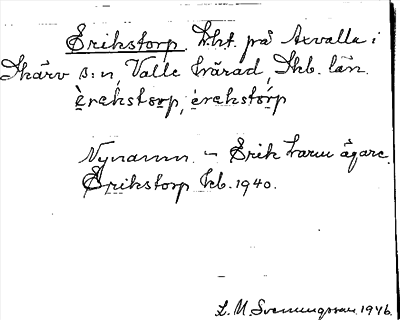 Erikstorp Lht. på Axvalla i
Skärv s:n, Valle härad, Skb. län.
èrekstorp, èrekstórp
Nynamn. - Erik
Erikstorp kb. 1940.
L. M. Svenungsson 1946.